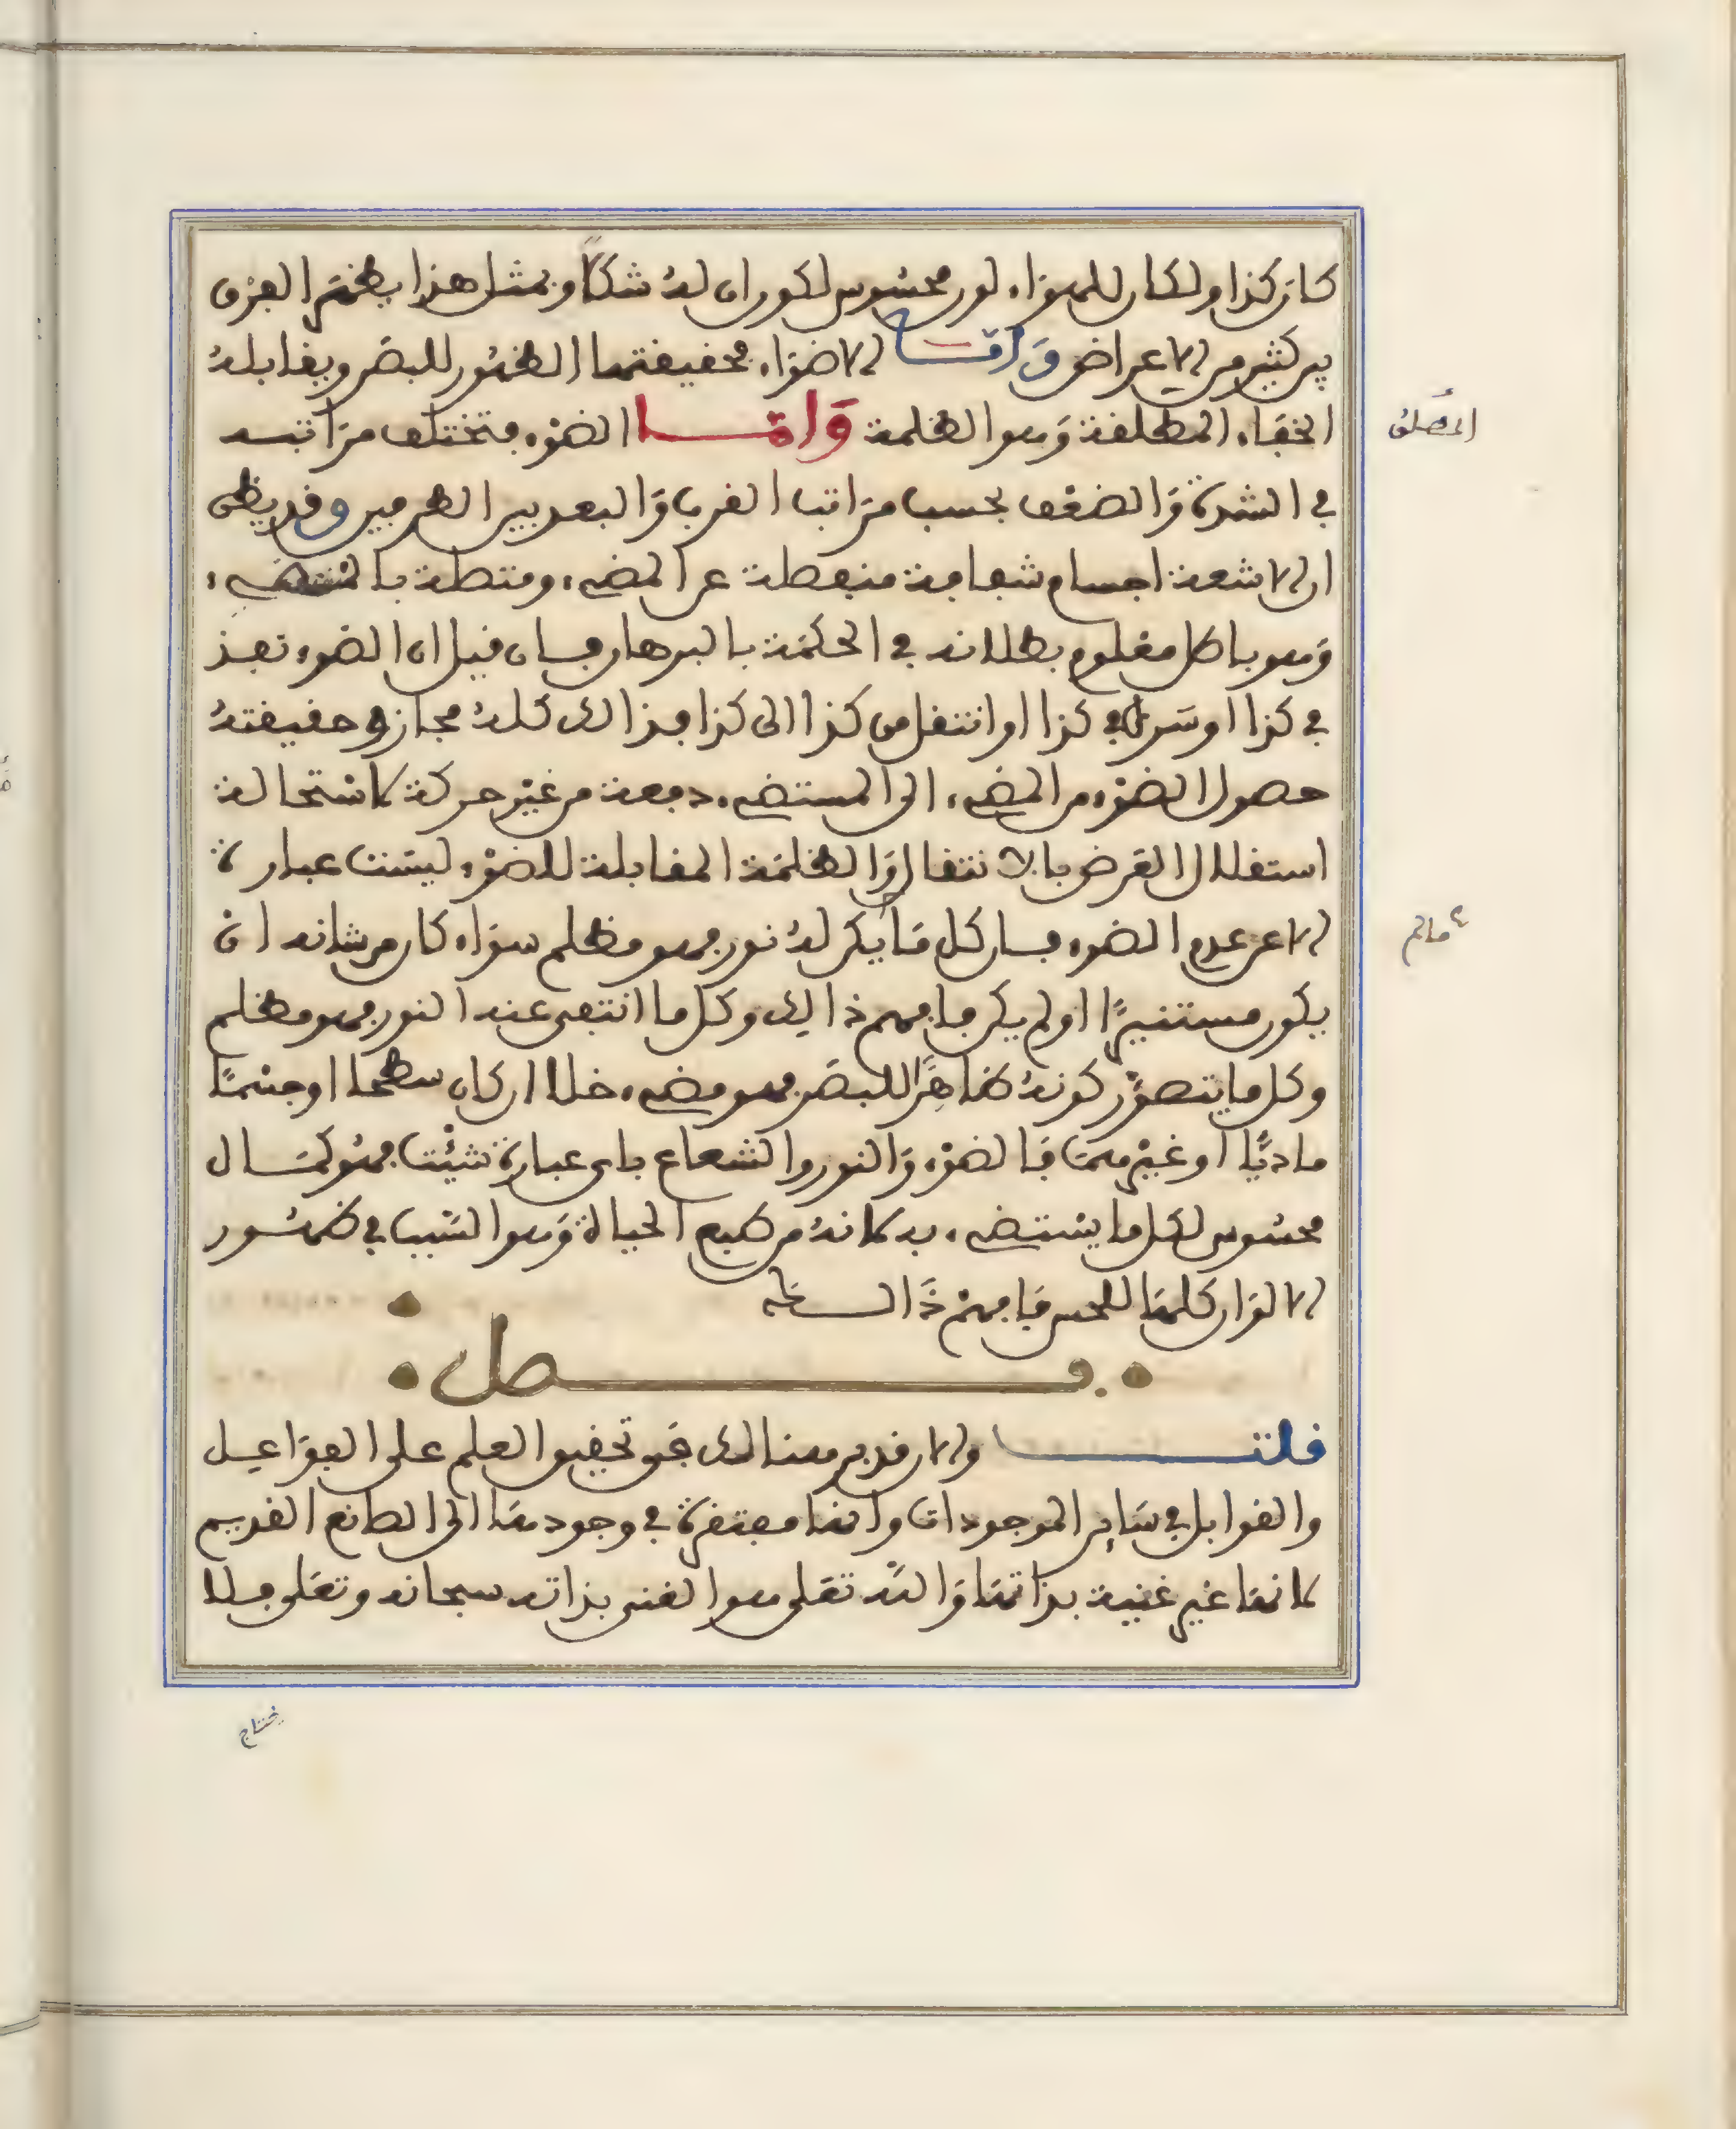 كان كذا ولكان للهواء لون محسوس لكون ان له شكلا وبمثل هذا يظهر الفرق
بين كثير من الاعراض وَاَمَّـا الاضواء فحقيقتها الظهور للبصر ويقابله
الخفاء المطلقة وَهو الظلمة وَامَّـا الضوْء فتختلف مرَاتبـه
في الشدة وَالضعْف بحسب مرَاتب القرب وَالبعد بين الطرفين وقد يظن
ان الاشعة اجسام شعاعية منفصلة عن المضيء ومتصلة با
وَهو باطل معْلوم بطلانه في الحكمَة بالبرهان فـان قيل ان الضوء نفـذ
في كذا او سَرى في كذا او انتقل من كذا الى كذا فذالك كلهُ مجاز وحقيقتهُ
حصول الضوْء من المضيء الى المستضيء دفعة من غيْر حركة لاسْتحالة
استقلال العَرض بالانتقال وَالظلمَة المقابلة للضوْء ليسَت عبارة
الا عن عدم الضوء فـان كل مَا يكن لهُ نور فهو مظلم سوَاء كان من شانه ان
يكون مستنيرًا او لم يكن فافهم ذالك وكل ما انتفى عنه النور فهو مظلم
وكل ما يتصوَّر كونهُ ظاهِرًا للبصَر فهو مضيء خلا ان كان سطحا او جسْمًا
ماديًّا او غيْرهمَا فَالضوْء وَالنور والشعاع باي عبارة شئْت فهُو كمَـال
محسُوس لكل ما يسْتضيء به لانهُ من طبع الحياة وَهو السَبب في ظهُـور
الالوَان كلهَا للحس فَافهمْ ذَالـك
فـصل
قلتـــ والان قد برهنا لك فى تحقيق العلم على الفوَاعيـل
والقوابل في سَاير الموجودات وانها مفتقرة في وجودهَا الى الصانع القديم
لانها غير غنية بذاتهَا وَاللَّه تعَلى هوا لغنى بذاته سبحانه وتعَلى فـلا
المطلق
ما لم
يحتاج